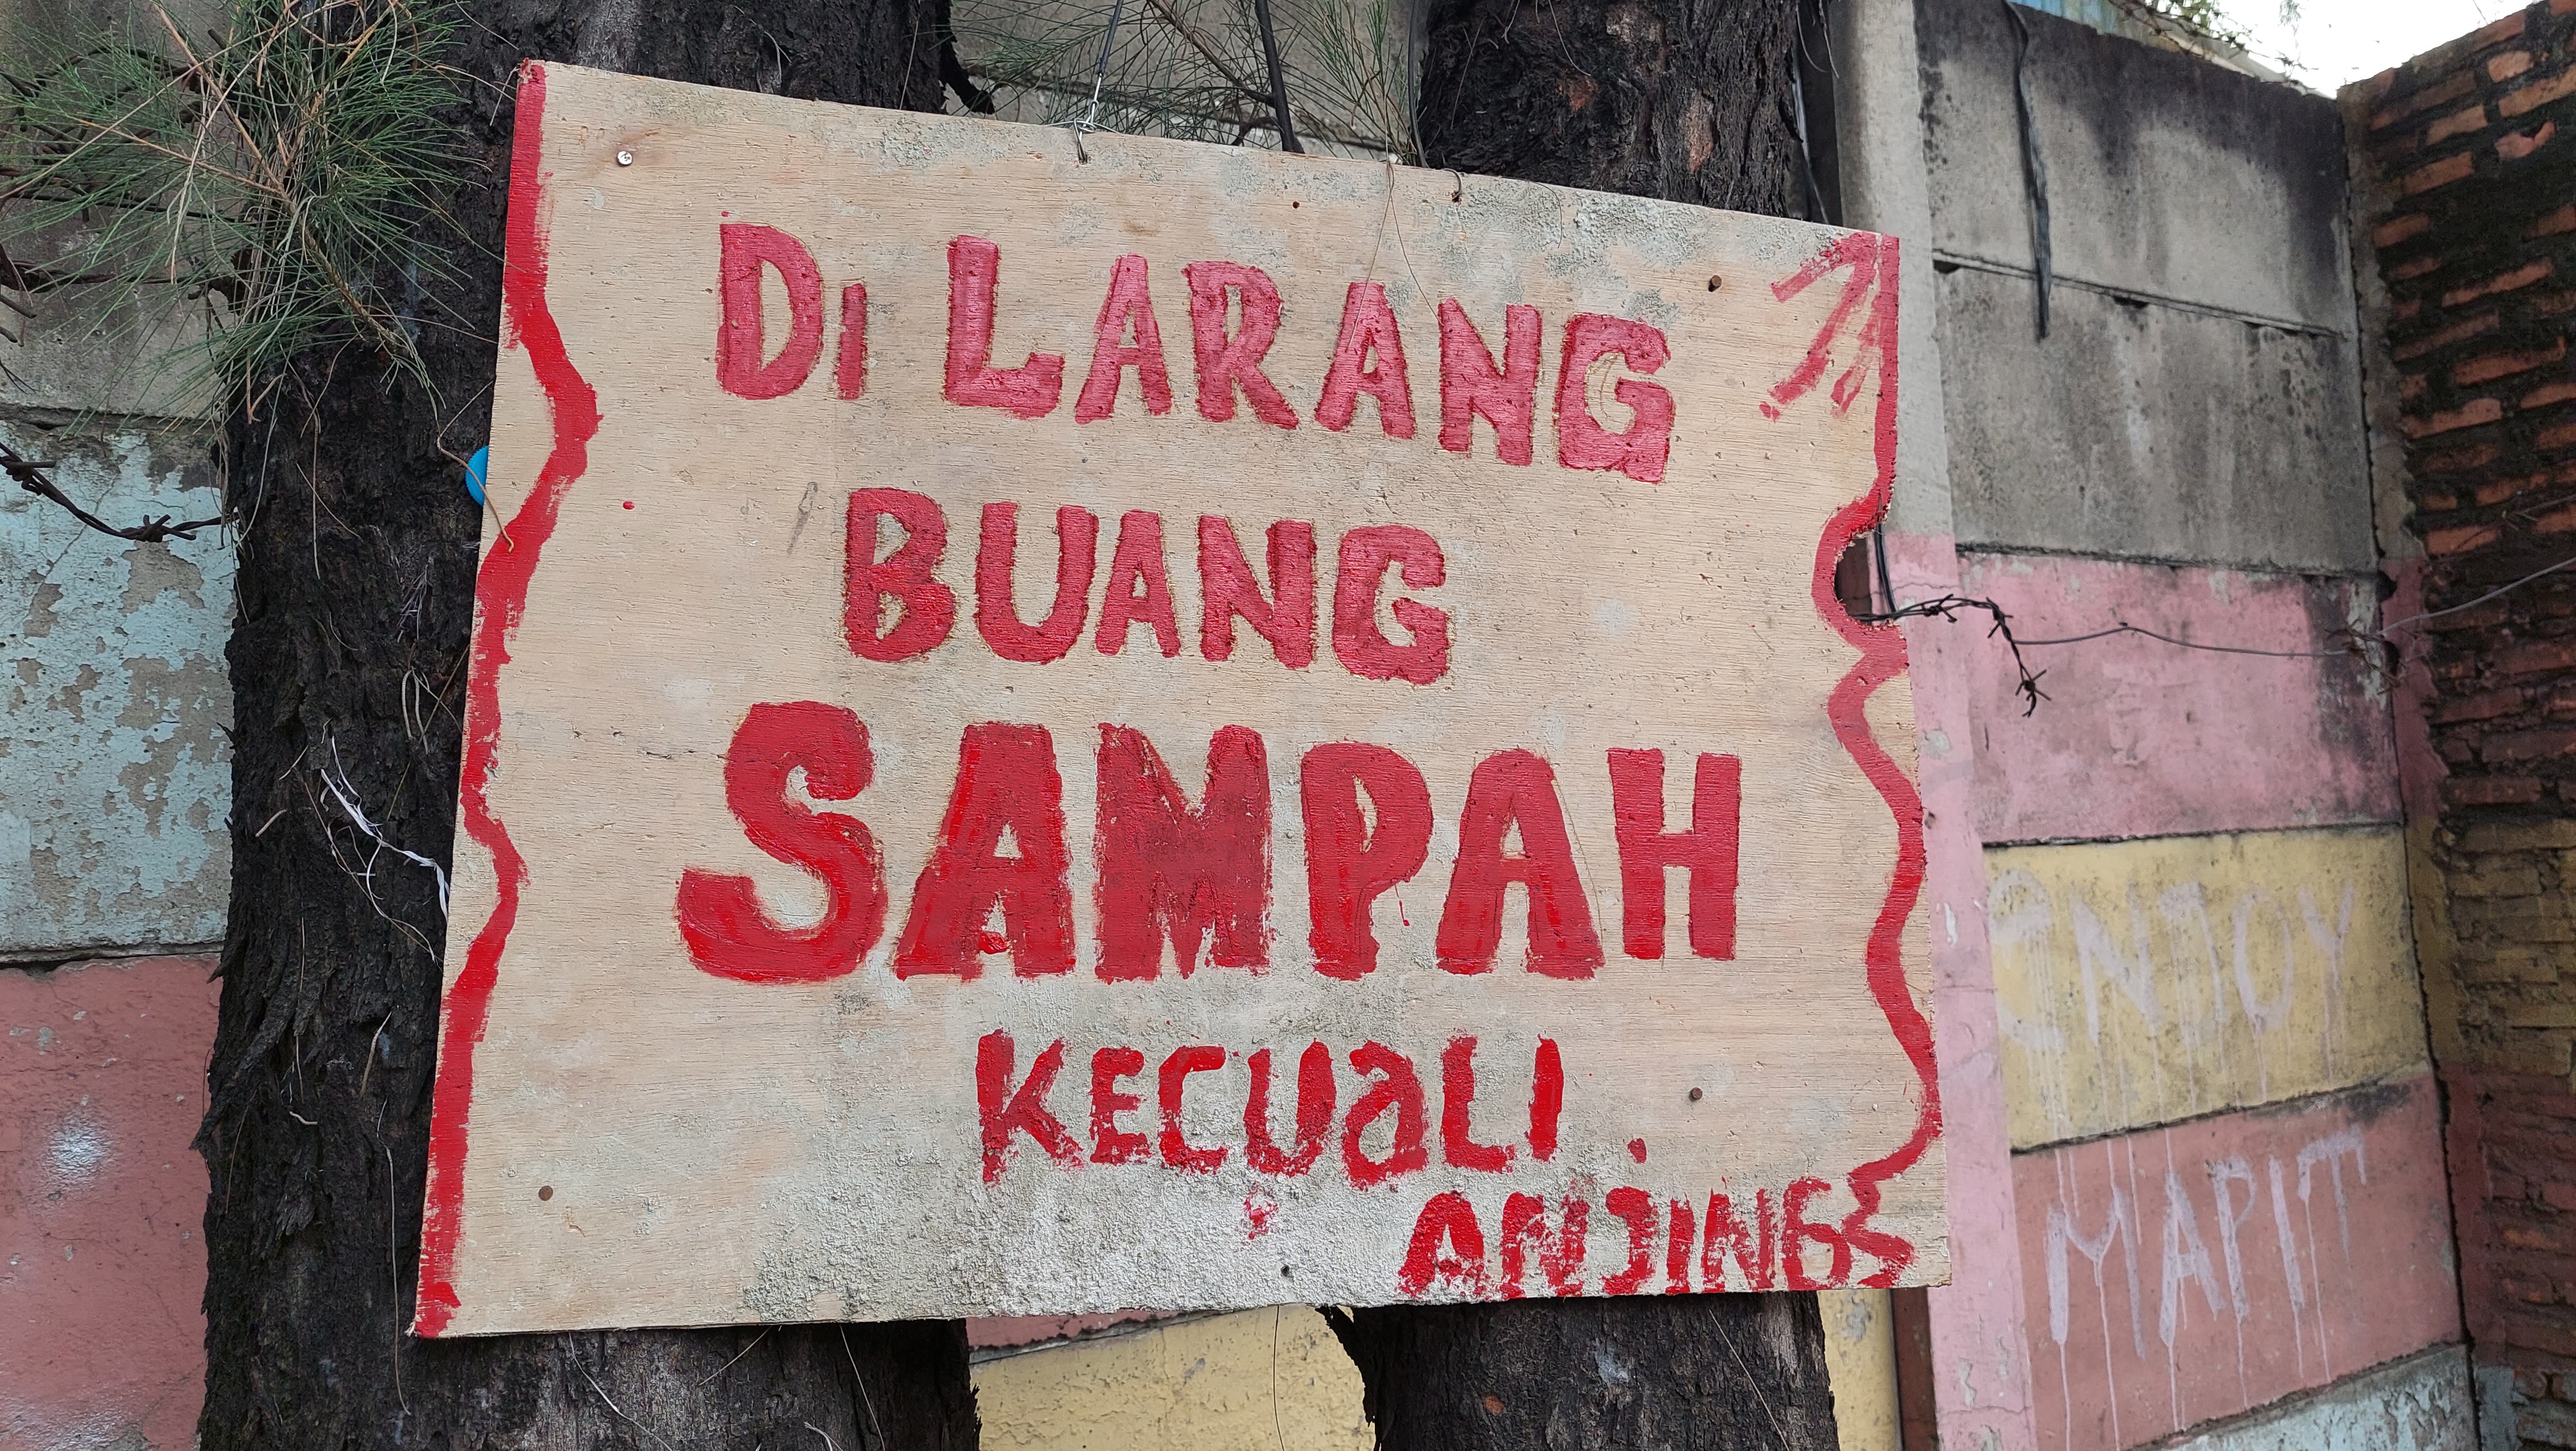 Di LARANG
BUANG
SAMPAH
KECUaLI.
ANJINGS
ENJOY
MAPIT